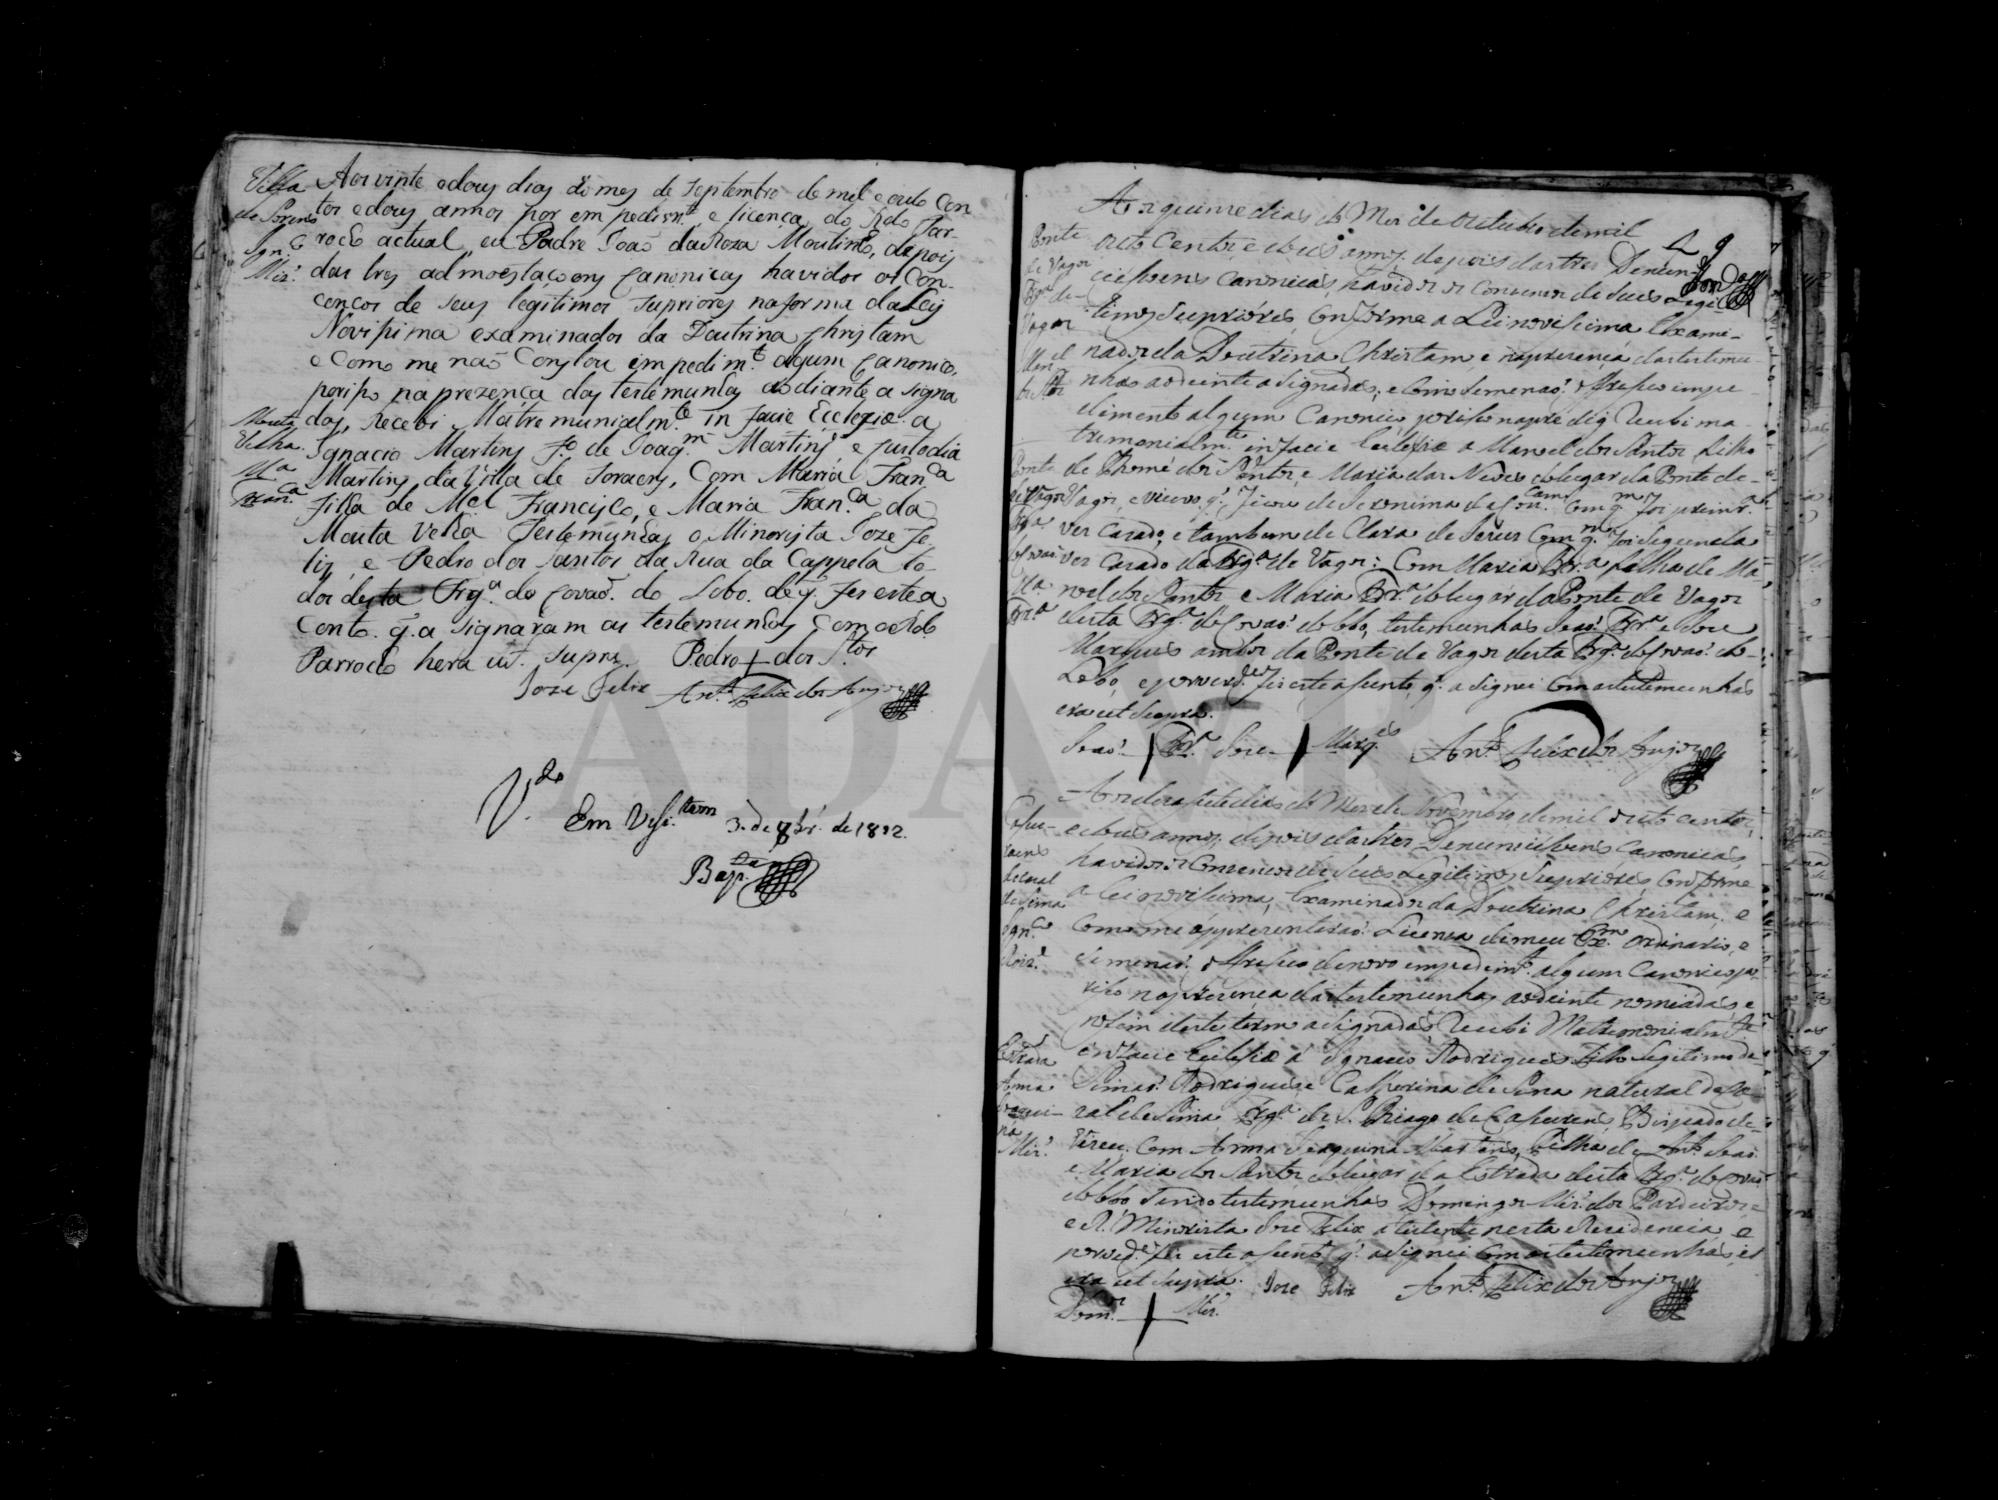 Villa de Sorens
Ign.co
Mīz.
Aos vinte e dous dias do mes de Septembro de mil e outo Cen
tos e dous annos por empedim.to e licença do Rdo Par-
rocho actual, eu Padre João da Roza Martins, depois
das tres admoestaçoens Canonicas havidos os Con-
cencos de Seus legitimos Supriores na forma da Ley
Novissima examinados da Doutrina Christam
e Como me não Constou empedim.to algum Canonico,
porisso na prezença das testemunhas ao diante a signa
das, Recebi Matremunialm.te in facie Eclezie a
Ignacio Martins f.o de Joaq.m Martins e Custodia
Martins da Villa de Soraens, Com Maria Fran.ca
filha de Mel Francisco, e Maria Fran.ca da
Mouta Velha Testemunhas o Minorista Joze Fe-
liz, e Pedro dos Santos da Rua da Cappela to-
dos desta Frg.a do Covaõ. do Lobo. de q. fes este a
Cento. q. a signaram as testemunhas Com o Rdo
Parrocho hera ut. Supra. Pedro + dos S.tos
Joze Felix Ant.o Felix dos Anjos
Mouta
Velha
M.a
Fran.ca
V.do
Em Vesi.tam 3. de 8br. de 1802.
Bap.ta
Aos quinze dias do Mes de Outubro de mil
outo Centos, e dous annos, depois das tres Denun-
ciassoens Canonicas, havidos os Consensos de Seus Legi-
timos Supriores, Conforme a Lei novissima Exami-
nados da Doutrina Christam, e na prezença das testemu-
nhas ao deiante a Signadas, e Como Se me naõ. offresseo impe-
dimento algum Canonico, porisso na pre
tremonialm.te in facie Eclesie a Manoel dos Santos Filho
de Thomé dos Santos, e Maria das Neves do lugar da Ponte de
Vagos, e viuvo q.
ver Cazado, e tambem de Clara de Jezus Com q.m foi Segunda
ves Cazado da Frg.a de Vagos: Com Maria Fr.a filha de Ma-
noel dos Santos e Maria Fr.a do lugar da Ponte de Vagos
desta Frg.a de Covaõ. do Lobo, testemunhas Joaõ. Fr.a e Joze
Marques ambos da Ponte de Vagos desta Frg.a do Covaõ. do
Lobo, e por verd.de fis este asento, q. a Signei Com as testemunhas
era ut Supra.
Joaõ. + Fr.a Joze + Marq.es Ant.o Felix dos Anjos
Ponte
de Vagos
Ponte
de Vagos
Aos dezasete dias do Mes de Novembro de mil outo centos,
e dous annos, depois das tres Denunciassoens Canonicas,
havidos os Consensos de Seus Legitimos Supriores, Conforme
a Lei novissima, Examinados da Doutrina Christam, e
Como me appresentaraõ. Licença de meu Ex.mo Ordinario, e
Se me naõ. offresseo de novo empedim.to algum Canonico, po-
risso na prezença das testemunhas ao deiante nomiadas, e
no fim deste termo a Signadas Recebi Matremonialm.te
in facie Eclesie a Ignacio Rodrigues Filho Legitimo de
Simaõ. Rodrigues e Catherina de Sima natural do Ca-
zal de Sima Frg.a de S. Thiago de Cassurens, Bispado de
Vizeu, Com Anna Joaquina Martins, Filha de Ant.o Joaõ.
e Maria dos Santos do lugar da Estrada desta Frg.a do Covaõ.
do Lobo Sendo testemunhas Domingos Mīz. dos Pardieiros
e o R. Minorista Joze Felix a Sistente nesta Rezidencia, e
por verd.e fis este asento, q. a Signei Com as testemunhas,
era ut Supra. Joze Felix Ant.o Felix dos Anjos
Dom.os + Mīz.
Cassu-
raens
do Cazal
de Sima
Ign.co
Roiz.
Estrada
Anna
Joaqui-
na
Mīz.
ADAVR